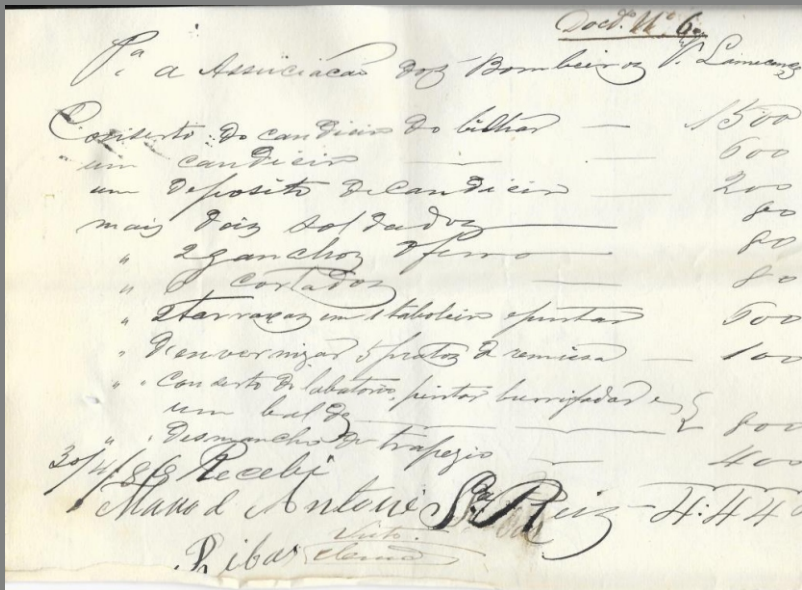 Docto. Nº 6
Pª a Associacáo doz Bombeiroz V. Lamecenses
Conserto do candieiro do bilhar — 1500
um candieiro — 600
um deposito de candieiro — 200
mais doiz soldadoz — 80
" 2 ganchoz de ferro — 80
" cortadoz — 80
" em 1 taboleiro e pintar 500
" d'envernizar 5 pratoz de remissa — 100
" Conserto do labatorio, pintar e
um balde — 800
" Desmancho do trapezio — 400
30/4/88 Recebi
Manoel Antonio Reiz 4:440
Ribas Visto.